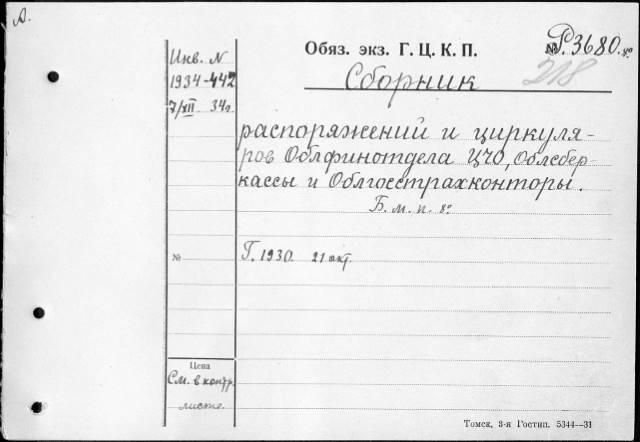 А.
Инв. N
1934-442
7/XII 34г.
Обяз. экз. Г. Ц. К. П.
№ Р.3680.8º
218
Сборник
распоряжений и циркуля-
ров Облфинотдела ЦЧО, Облсбер-
кассы и Облгосстрахконторы.
Б. м. п. 8º
№
Г. 1930. 21 окт.
Цена
См. в контр.
листе.
Томск, 3-я Гостип. 5344—31